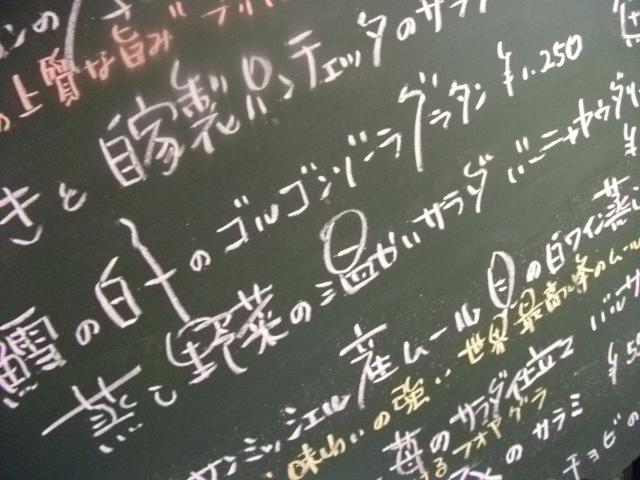 の上質な旨み
きと 自家製パンチェッタのサラ
鱈の白子のゴルゴンゾーラグラタン ¥1.250
蒸し野菜の温かいサラダ バーニャカウダ
サンミッシェル産ムール貝の白ワイン蒸し
味わいの強い 世界最高峰のムール
苺のサラダ仕立て バルサ
フォアグラ
のサラミ
チョビの